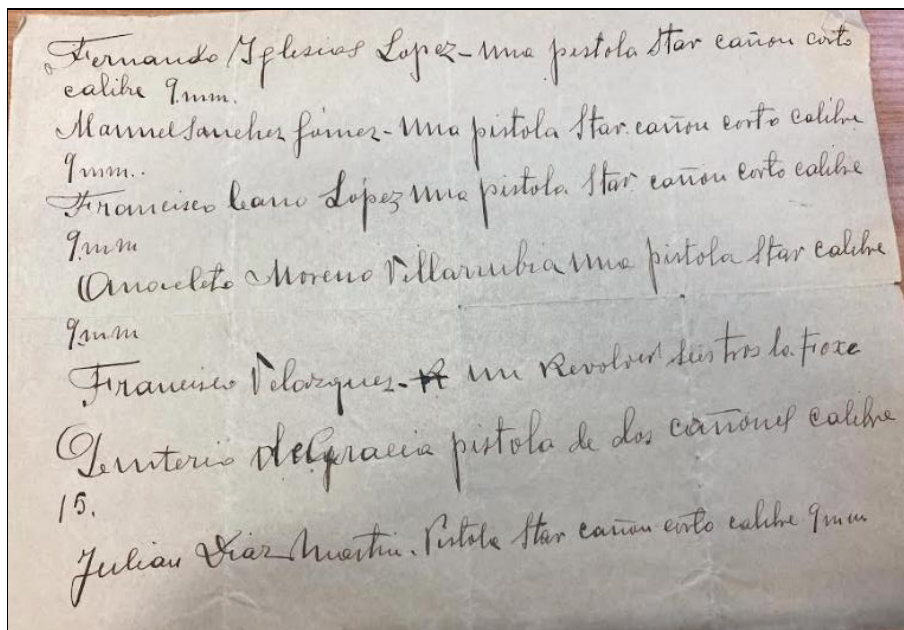 Fernando Iglesias Lopez - una pistola Star cañon corto
calibre 9.mm.
Manuel Sanchez Gómez - una pistola Star cañon corto calibre
9mm..
Francisco Cano López una pistola Star cañon corto calibre
9.mm
Anacleto Moreno Villarrubia una pistola Star calibre
9mm
Francisco Velazquez - un Revolver seis tros la
pistola de dos cañones calibre
15.
Julian Diaz Martin. Pistola Star cañon corto calibre 9mm